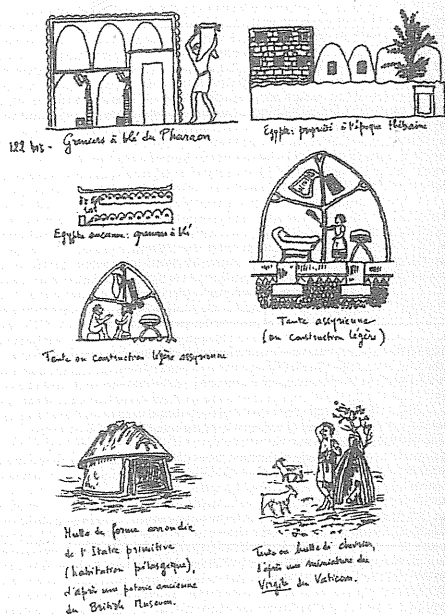 122 bis - Greniers à blé du Pharaon
Egypte: propriété à l'époque thébaine
Egypte ancienne: greniers à blé
Tente assyrienne
(ou construction légère)
Tente ou construction légère assyrienne
Hutte de forme arrondie
de l'Italie primitive
(habitation pélasgique),
d'après une poterie ancienne
du British Museum.
Tente ou hutte de chevrier,
d'après une miniature du
Virgile du Vatican.